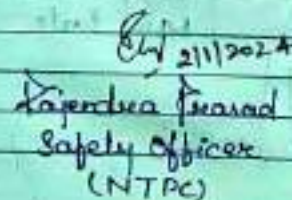 2/1/2024
Rajendra Prasad
Safety Officer
(NTPC)